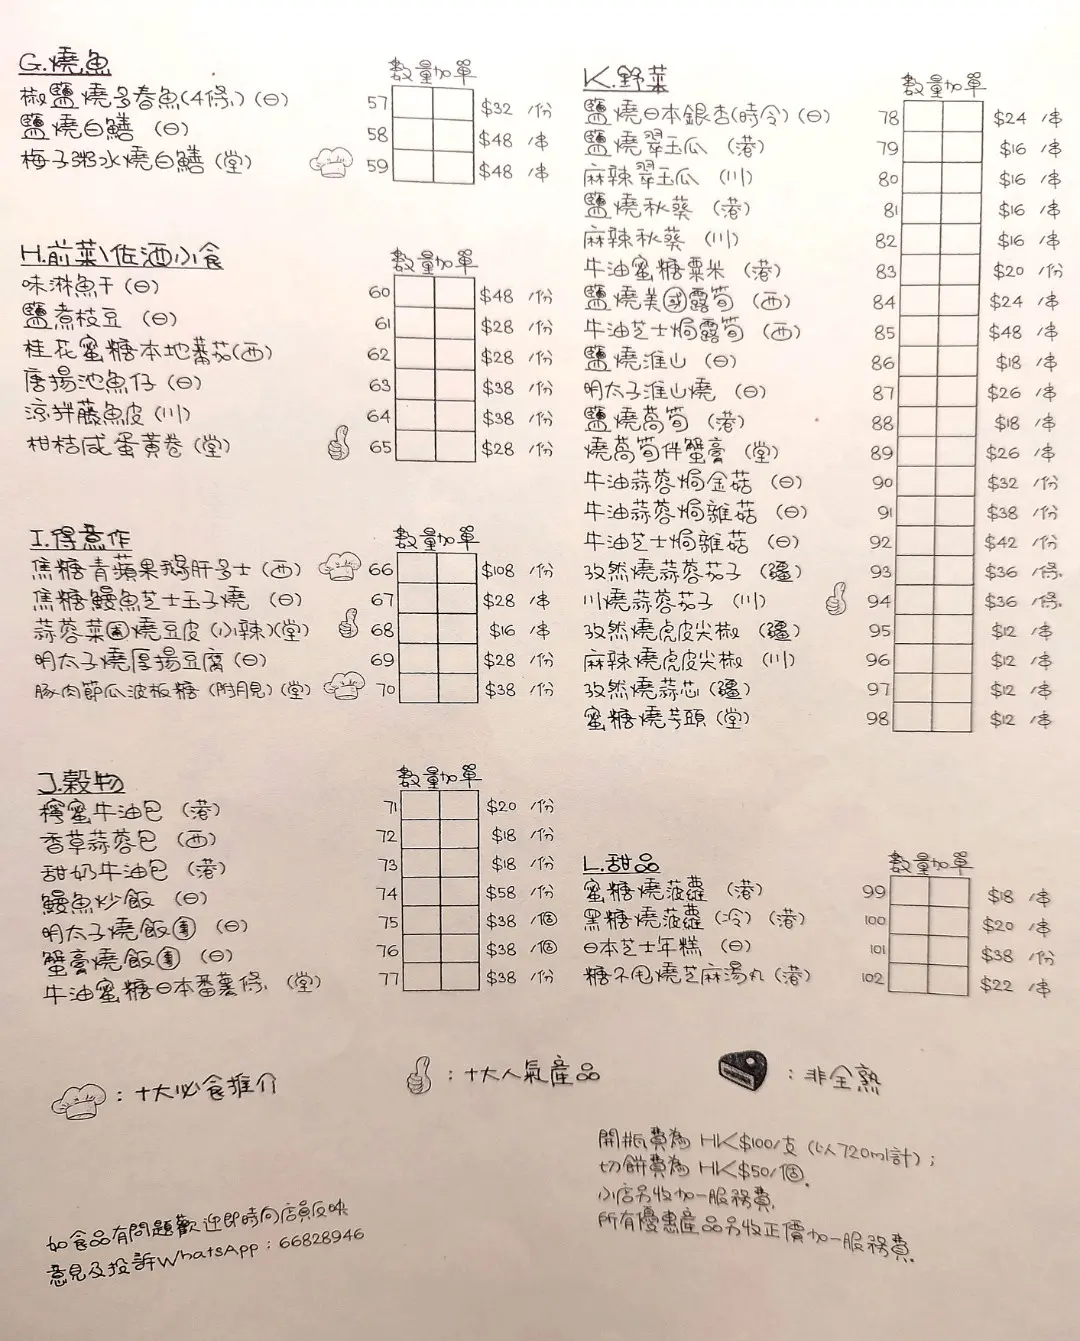 G.燒魚
數量加單
椒鹽燒多春魚(4條)(日) 57 $32 /份
鹽燒白鱔 (日) 58 $48 /串
梅子粥水燒白鱔(堂) 59 $48 /串
H.前菜\佐酒小食
數量加單
味淋魚干(日) 60 $48 /份
鹽煮枝豆 (日) 61 $28 /份
桂花蜜糖本地蕃茄(西) 62 $28 /份
唐揚池魚仔(日) 63 $38 /份
涼拌藤魚皮(川) 64 $38 /份
柑桔咸蛋黃卷(堂) 65 $28 /份
I.得意作
數量加單
焦糖青蘋果鵝肝多士(西) 66 $108 /份
焦糖鰻魚芝士玉子燒 (日) 67 $28 /串
蒜蓉菜園燒豆皮(小辣)(堂) 68 $16 /串
明太子燒厚揚豆腐(日) 69 $28 /份
豚肉節瓜波板糖(附月見)(堂) 70 $38 /份
J.穀物
數量加單
檸蜜牛油包 (港) 71 $20 /份
香草蒜蓉包 (西) 72 $18 /份
甜奶牛油包 (港) 73 $18 /份
鰻魚炒飯 (日) 74 $58 /份
明太子燒飯團 (日) 75 $38 /個
蟹膏燒飯團 (日) 76 $38 /個
牛油蜜糖日本番薯條 (堂) 77 $38 /份
K.野菜
數量加單
鹽燒日本銀杏(時令)(日) 78 $24 /串
鹽燒翠玉瓜 (港) 79 $16 /串
麻辣翠玉瓜 (川) 80 $16 /串
鹽燒秋葵 (港) 81 $16 /串
麻辣秋葵 (川) 82 $16 /串
牛油蜜糖粟米 (港) 83 $20 /份
鹽燒美國露筍 (西) 84 $24 /串
牛油芝士焗露筍 (西) 85 $48 /串
鹽燒淮山 (日) 86 $18 /串
明太子淮山燒 (日) 87 $26 /串
鹽燒萵筍 (港) 88 $18 /串
燒萵筍伴蟹膏 (堂) 89 $26 /串
牛油蒜蓉焗金菇 (日) 90 $32 /份
牛油蒜蓉焗雜菇 (日) 91 $38 /份
牛油芝士焗雜菇 (日) 92 $42 /份
孜然燒蒜蓉茄子 (疆) 93 $36 /條
川燒蒜蓉茄子 (川) 94 $36 /條
孜然燒虎皮尖椒 (疆) 95 $12 /串
麻辣燒虎皮尖椒 (川) 96 $12 /串
孜然燒蒜芯(疆) 97 $12 /串
蜜糖燒芋頭(堂) 98 $12 /串
L.甜品
數量加單
蜜糖燒菠蘿 (港) 99 $18 /串
黑糖燒菠蘿(冷)(港) 100 $20 /串
日本芝士年糕 (日) 101 $38 /份
糖不甩燒芝麻湯丸(港) 102 $22 /串
:十大必食推介
:十大人氣產品
:非全熟
開瓶費為 HK$100/支 (以720ml計);
切餅費為 HK$50/個.
小店另收加一服務費,
所有優惠產品另收正價加一服務費.
如食品有問題歡迎即時向店員反映
意見及投訴WhatsApp:66828946